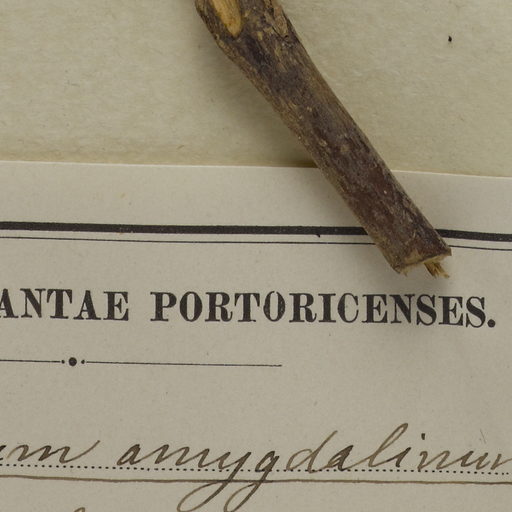 ANTAE PORTORICENSES.
um amygdalinum